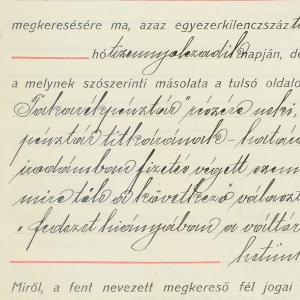 megkeresésére ma, azaz egyezerkilenczszáz
hó tizennyolczadik napján, de
a melynek szószerinti másolata a tulsó oldalo
Takarékpénztár" részére neki,
pénztár titkárának - határi
irodámban fizetés végett szem
mire tőle a következő választ
"fedezet hiányában a váltór
hetün
Miről, a fent nevezett megkereső fél jogai